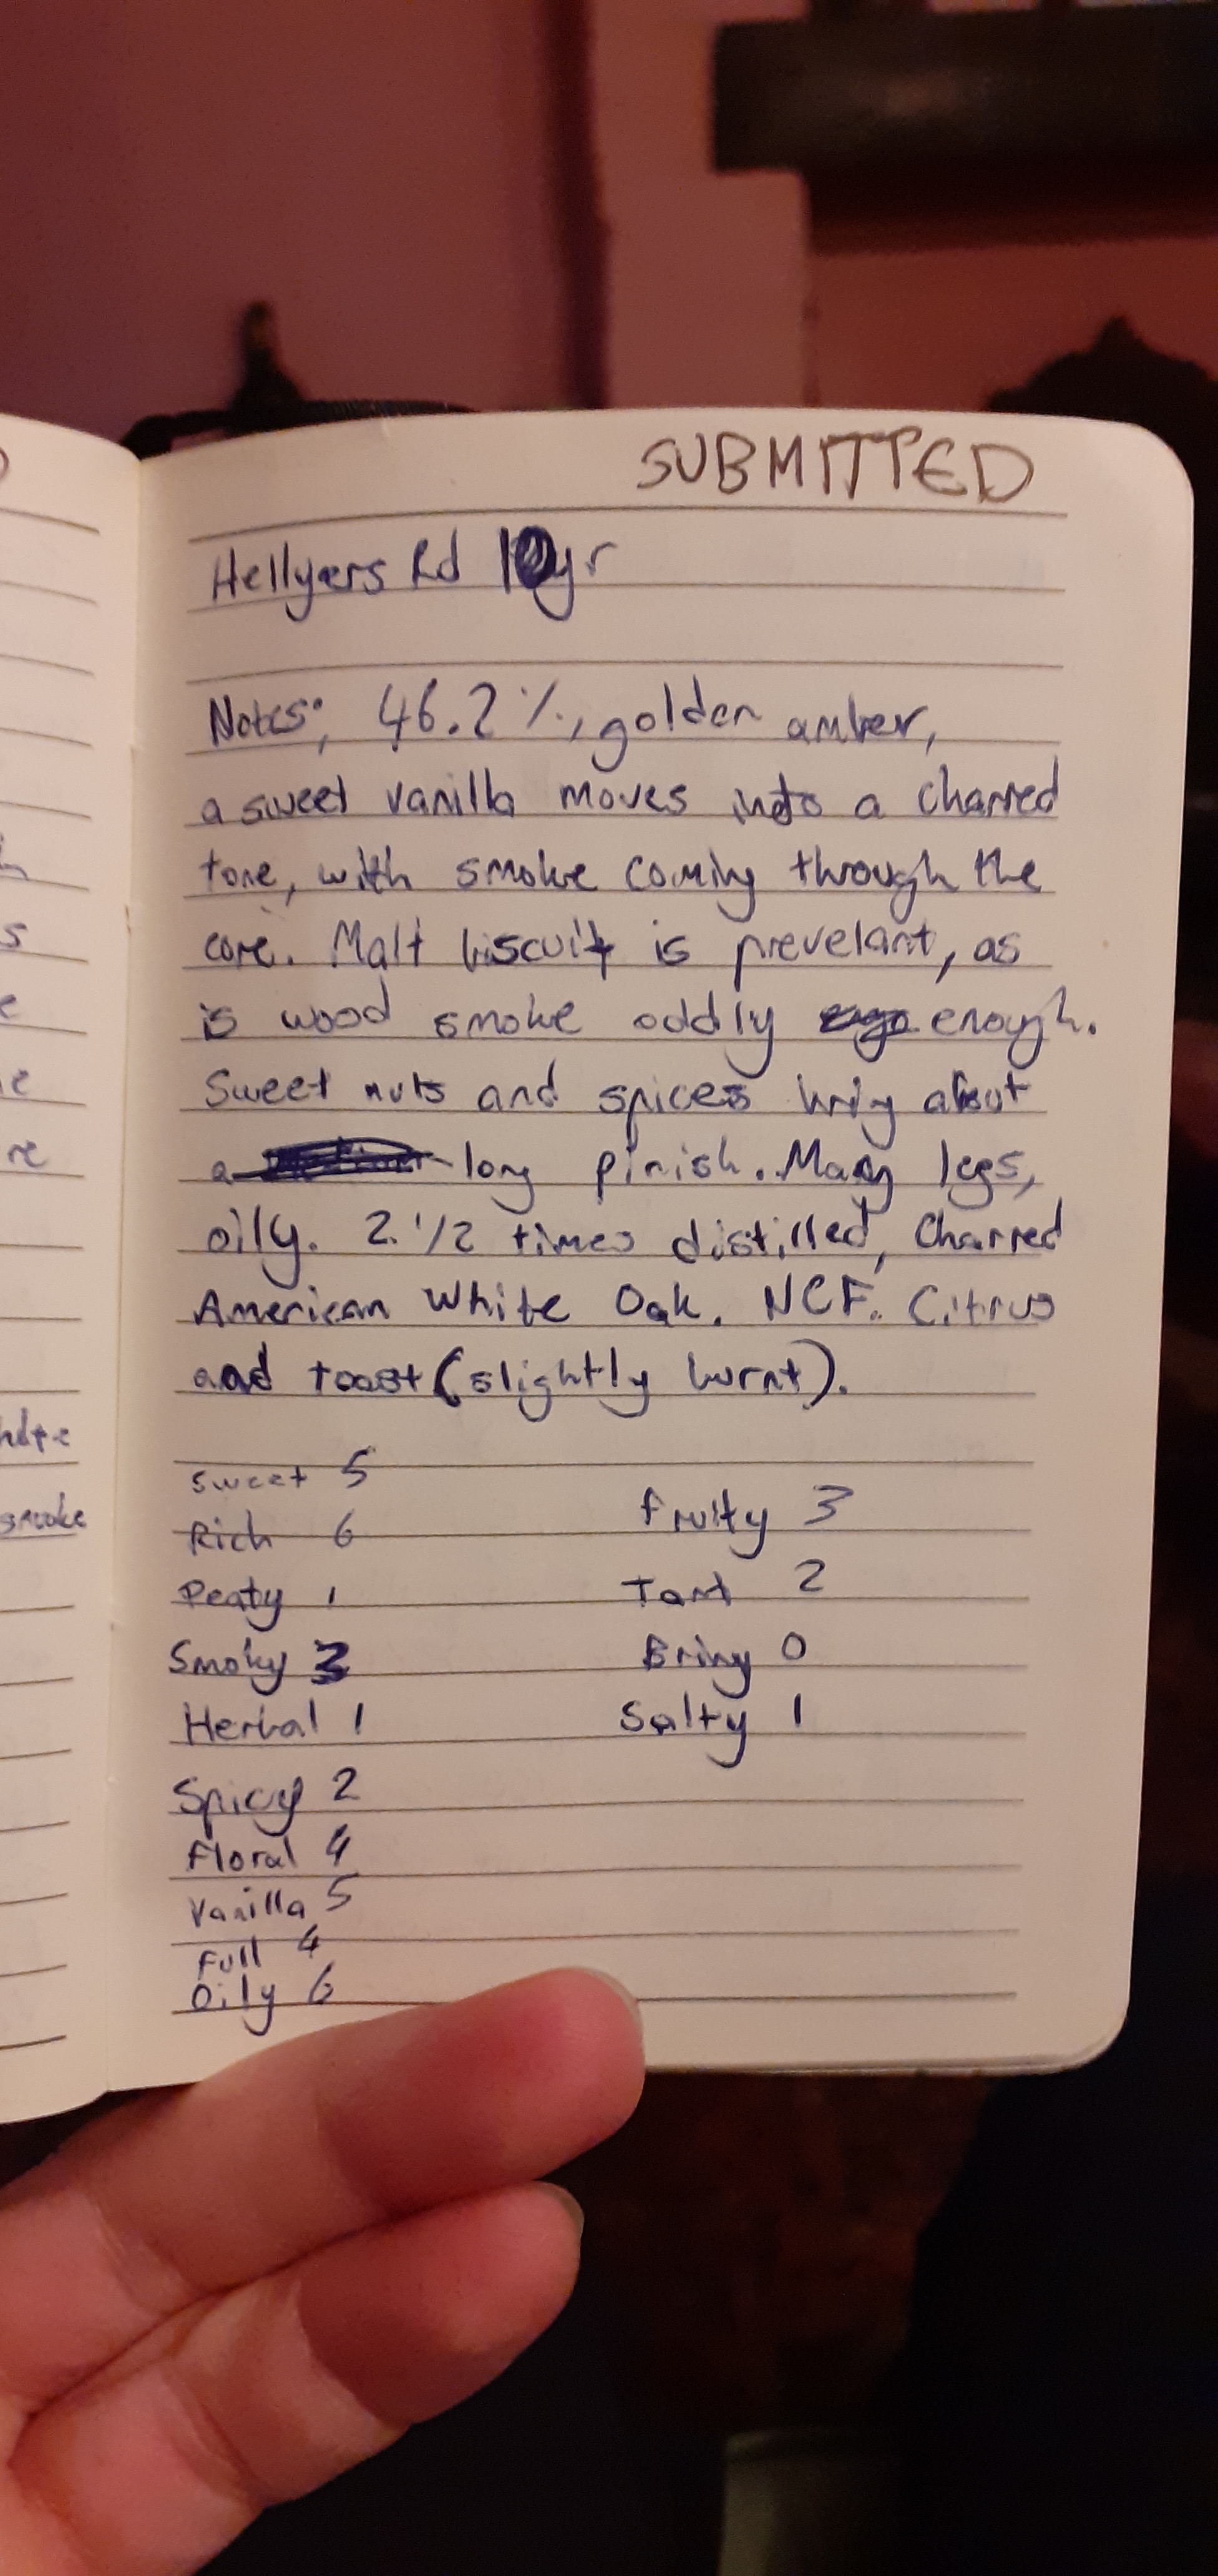 SUBMITTED
Hellyers Rd 10yr
Notes; 46.2%, golden amber,
a sweet vanilla moves into a charred
tone, with smoke coming through the
core. Malt biscuit is prevelant, as
is wood smoke oddly enough.
Sweet nuts and spices bring about
a long finish. Many legs,
oily. 2.1/2 times distilled, Charred
American White Oak. NCF. Citrus
and toast (slightly burnt).
Sweet 5
Rich 6
Peaty 1
Smoky 3
Herbal 1
Spicy 2
Floral 4
Vanilla 5
Full 4
Oily 6
Fruity 3
Tart 2
Briny 0
Salty 1
s
e
re
smoke